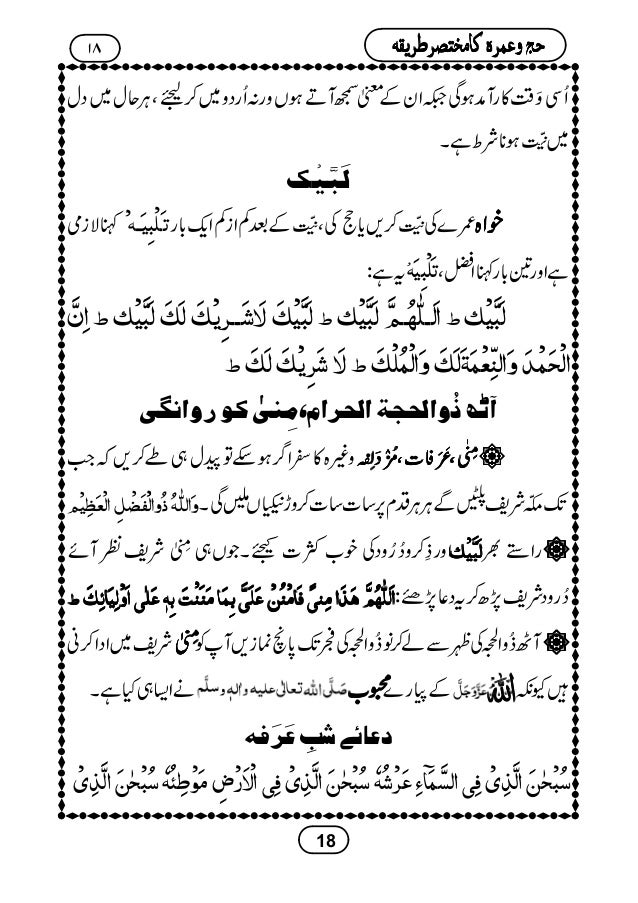 حج و عمرہ کا مختصر طریقہ
۱۸
اُسی وَقت کارآمد ہوگی جبکہ ان کے معنیٰ سمجھ آتے ہوں ورنہ اُردو میں کر لیجئے ، ہر حال میں دل
میں نیّت ہونا شرط ہے۔
لَبَّیْک
خواہ عمرے کی نیّت کریں یا حج کی ، نیّت کے بعد کم از کم ایک بار تَلْبِیَہ کہنا لازمی
ہے اور تین بار کہنا افضل، تَلْبِیَہ یہ ہے:
لَبَّیْكَ ط اَللّٰهُمَّ لَبَّیْكَ ط لَبَّیْكَ لَاشَرِیْكَ لَكَ لَبَّیْكَ ط اِنَّ
الْحَمْدَ وَالنِّعْمَةَ لَكَ وَالْمُلْكَ ط لَا شَرِیْكَ لَكَ ط
آٹھ ذُوالحجة الحرام، مِنیٰ کو روانگی
مِنٰی ، عَرَفات ، مُزْدَلِفہ وغیرہ کا سفر اگر ہو سکے تو پیدل ہی طے کریں کہ جب
تک مکّہ شریف پلٹیں گے ہر ہر قدم پر سات سات کروڑ نیکیاں ملیں گی۔ وَاللّٰهُ ذُوالْفَضْلِ الْعَظِیْم
راستے بھر لَبَّیْک ور ذِکر و دُرُود کی خوب کثرت کیجئے۔ جوں ہی مِنیٰ شریف نظر آئے
دُرود شریف پڑھ کر یہ دعا پڑھئے: اَللّٰهُمَّ هٰذَا مِنیً فَامْنُنْ عَلَیَّ بِمَا مَنَنْتَ بِهٖ عَلٰی اَوْلِیَائِكَ ط
آٹھ ذُوالحجہ کی ظہر سے لے کر نو ذُوالحجہ کی فجر تک پانچ نمازیں آپ کو مِنیٰ شریف میں ادا کرنی
ہیں کیونکہ اللّٰہ عَزَّوَجَلَّ کے پیارے محبوب صَلَّی اللہ تعالٰی علیہ والہٖ وسلَّم نے ایسا ہی کیا ہے۔
دعائے شبِ عَرَفہ
سُبْحٰنَ الَّذِیْ فِی السَّمَآءِ عَرْشُهٗ سُبْحٰنَ الَّذِیْ فِی الْاَرْضِ مَوْطِئُهٗ سُبْحٰنَ الَّذِیْ
18